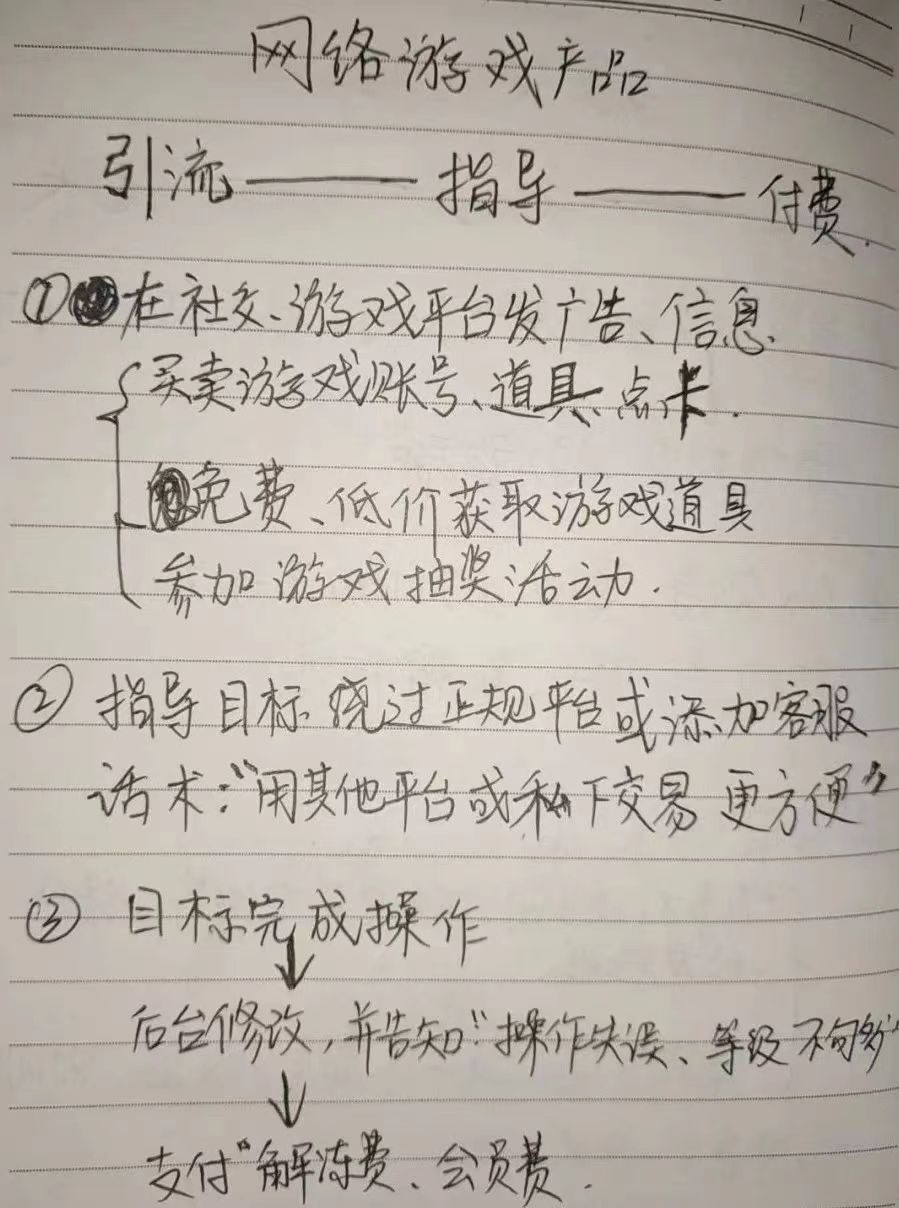 网络游戏产品
引流——指导——付费.
①在社交、游戏平台发广告、信息.
买卖游戏账号、道具、点卡.
免费、低价获取游戏道具
参加游戏抽奖活动.
② 指导目标绕过正规平台或添加客服
话术:“用其他平台或私下交易更方便”
③ 目标完成操作
↓
后台修改,并告知“操作失误、等级不够”
↓
支付“解冻费、会员费.